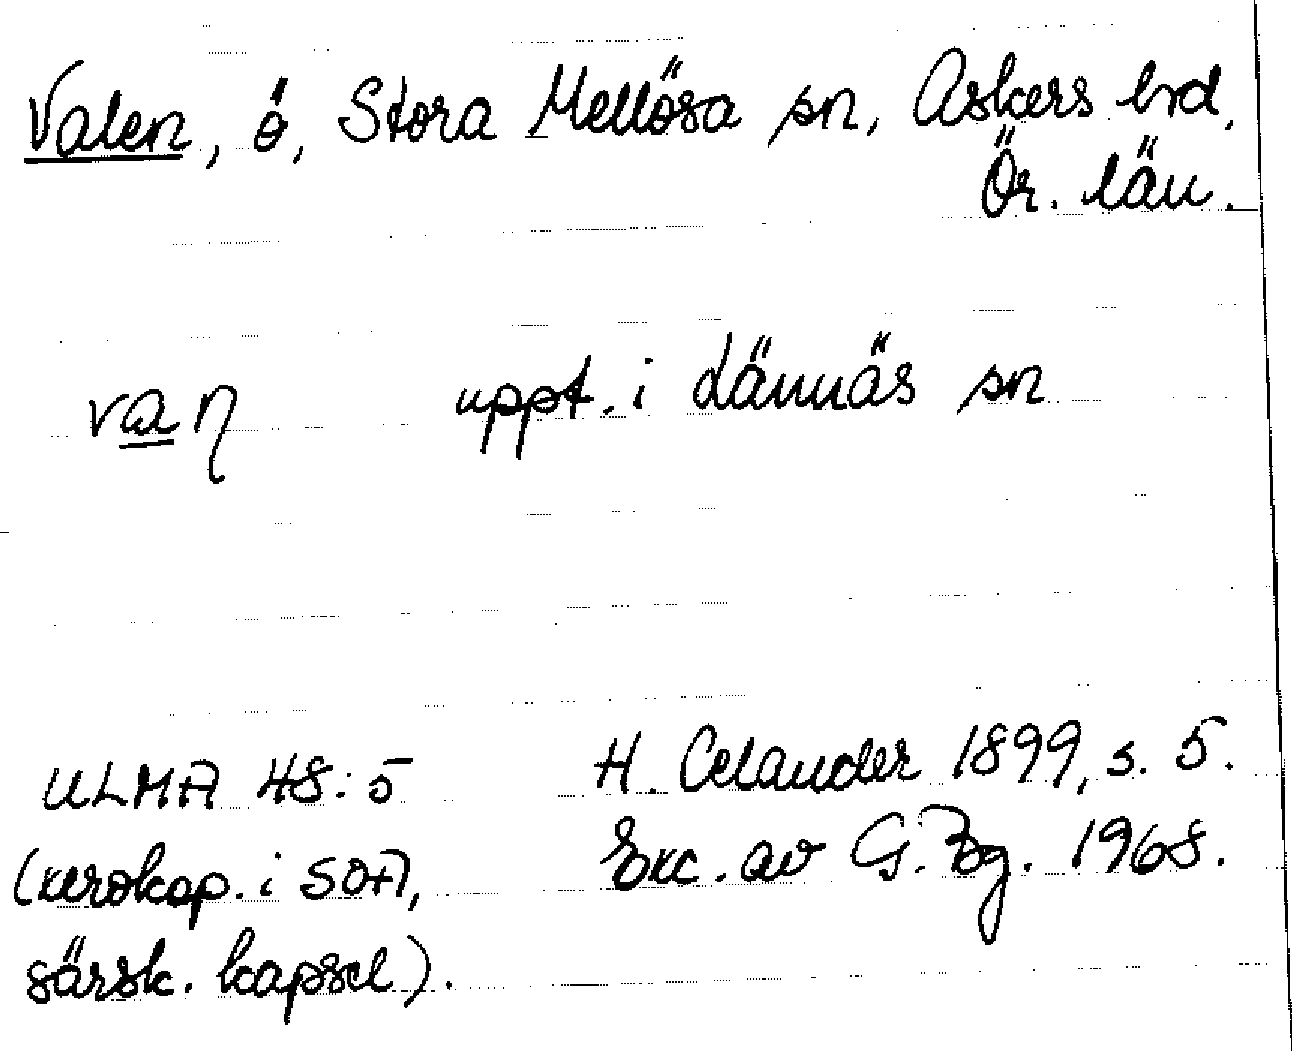 Valen, ö, Stora Mellösa sn, Askers hrd,
Ör. län.
van̩ uppt. i Lännäs sn
ULMA 48:5 H. Celander 1899, s. 5.
(xerokop. i SOA, Exc. av G. Bg. 1968.
särsk. kapsel).